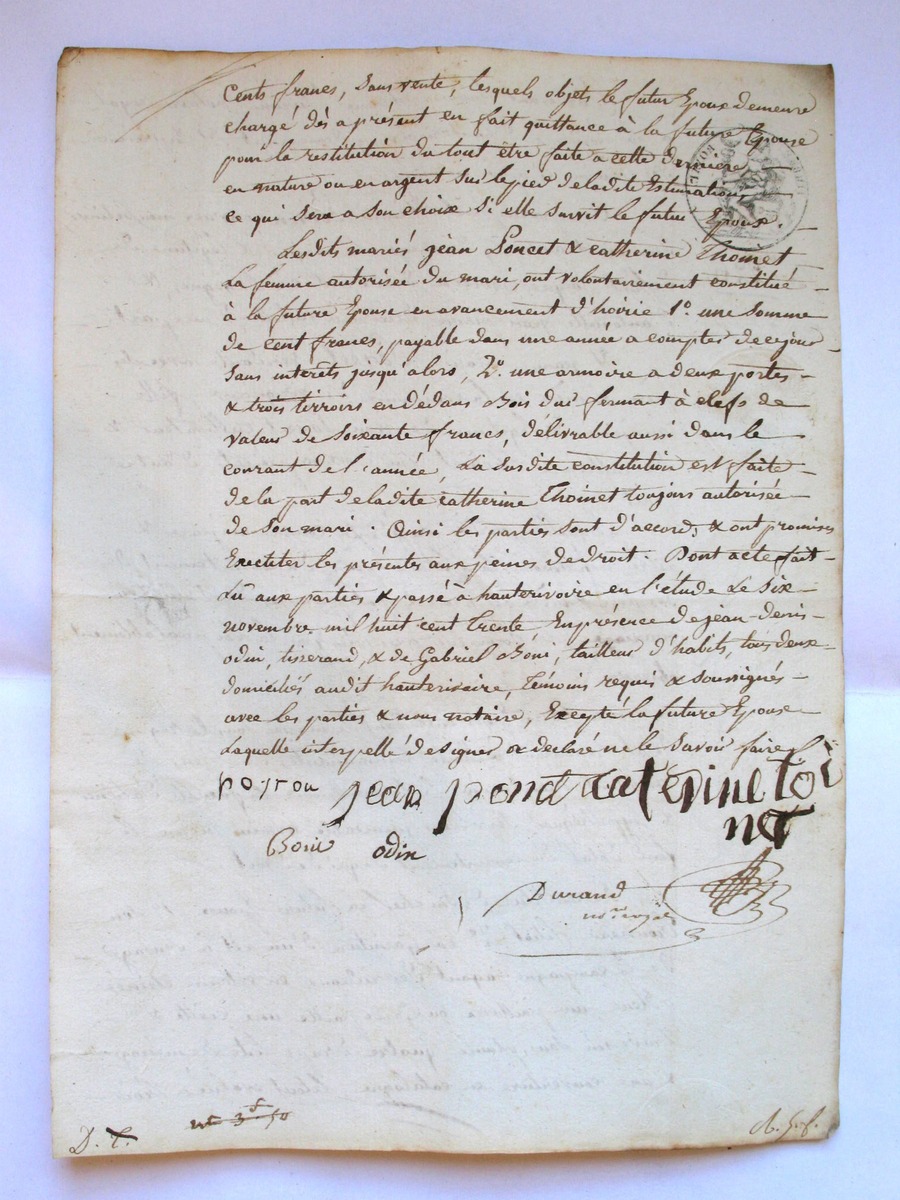 Cents francs, Sans vente, lesquels objets le futur Epoux demeure
chargé dès a présent en fait quittance à la future Epouse
pour la restitution du tout être faite a cette dernière
en nature ou en argent sur le pied de ladite Estimation
ce qui sera a son choix Si elle survit le futur Epoux.
Lesdits mariés jean Poncet & catherine Thoinet
La femme autorisée du mari, ont volontairement constitué
à la future Epouse en avancement d'hoirie 1o. une Somme
de cent francs, payable dans une année a compter de ce jour
Sans interêts jusqu'alors, 2o. une armoire a deux portes
& trois tirroirs en dédans Bois dur fermant à clefs de
valeur de Soixante francs, délivrable aussi dans le
courant de l'année, La Susdite constitution est faite
de la part de ladite catherine Thoinet toujours autorisée
de Son mari. Ainsi les parties sont d'accord, & ont promises
Executer les présentes aux peines de droit. Dont acte fait
Lû aux parties & passé à hauterivoire en l'étude Le Six
novembre mil huit cent Trente En présence de jean-denis
odin, tisserand, & de Gabriel Boni, tailleur d'habits, tous deux
domiciliés audit hauterivoire, Témoins requis & Soussignés
avec les parties & nous notaire, Excepté la future Epouse
Laquelle interpellé de signer a declaré ne le Savoir faire
jean pond caterine toi
net
Boni odin
Durand
nre royal
nte 3f 50
D. T.